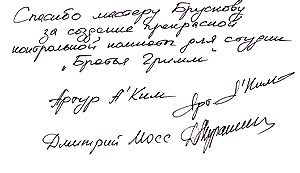 Спасибо мастеру Брускову
за создание прекрасной
контрольной комнаты для студии
"Братья Гримм"
Артур А'Ким
Арт А'Ким
Дмитрий Мосс